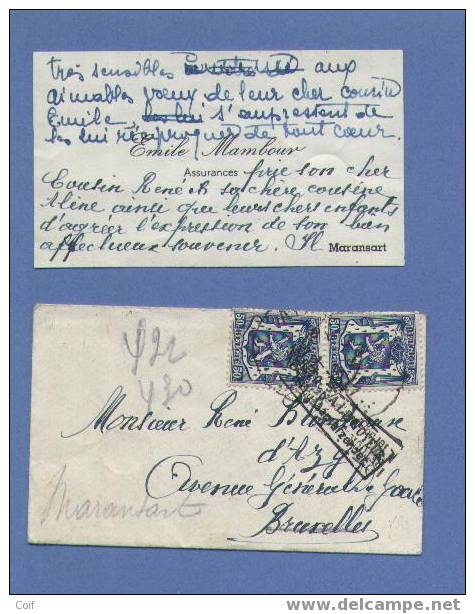 très sensibles aux
aimables voeux de leur cher cousin
Emile, s'empressent de
les lui réciproquer de tout coeur.
Emile Mambour
Assurances prie son cher
Cousin René et sa chère cousine
Aline ainsi que leurs chers enfants
d'agréer l'expression de son bon
affectueux souvenir.
Maransart
50c
50c
492
430
Monsieur René
d'Azy
Avenue Général
Bruxelles
Maransart
Coif
delcampe.net